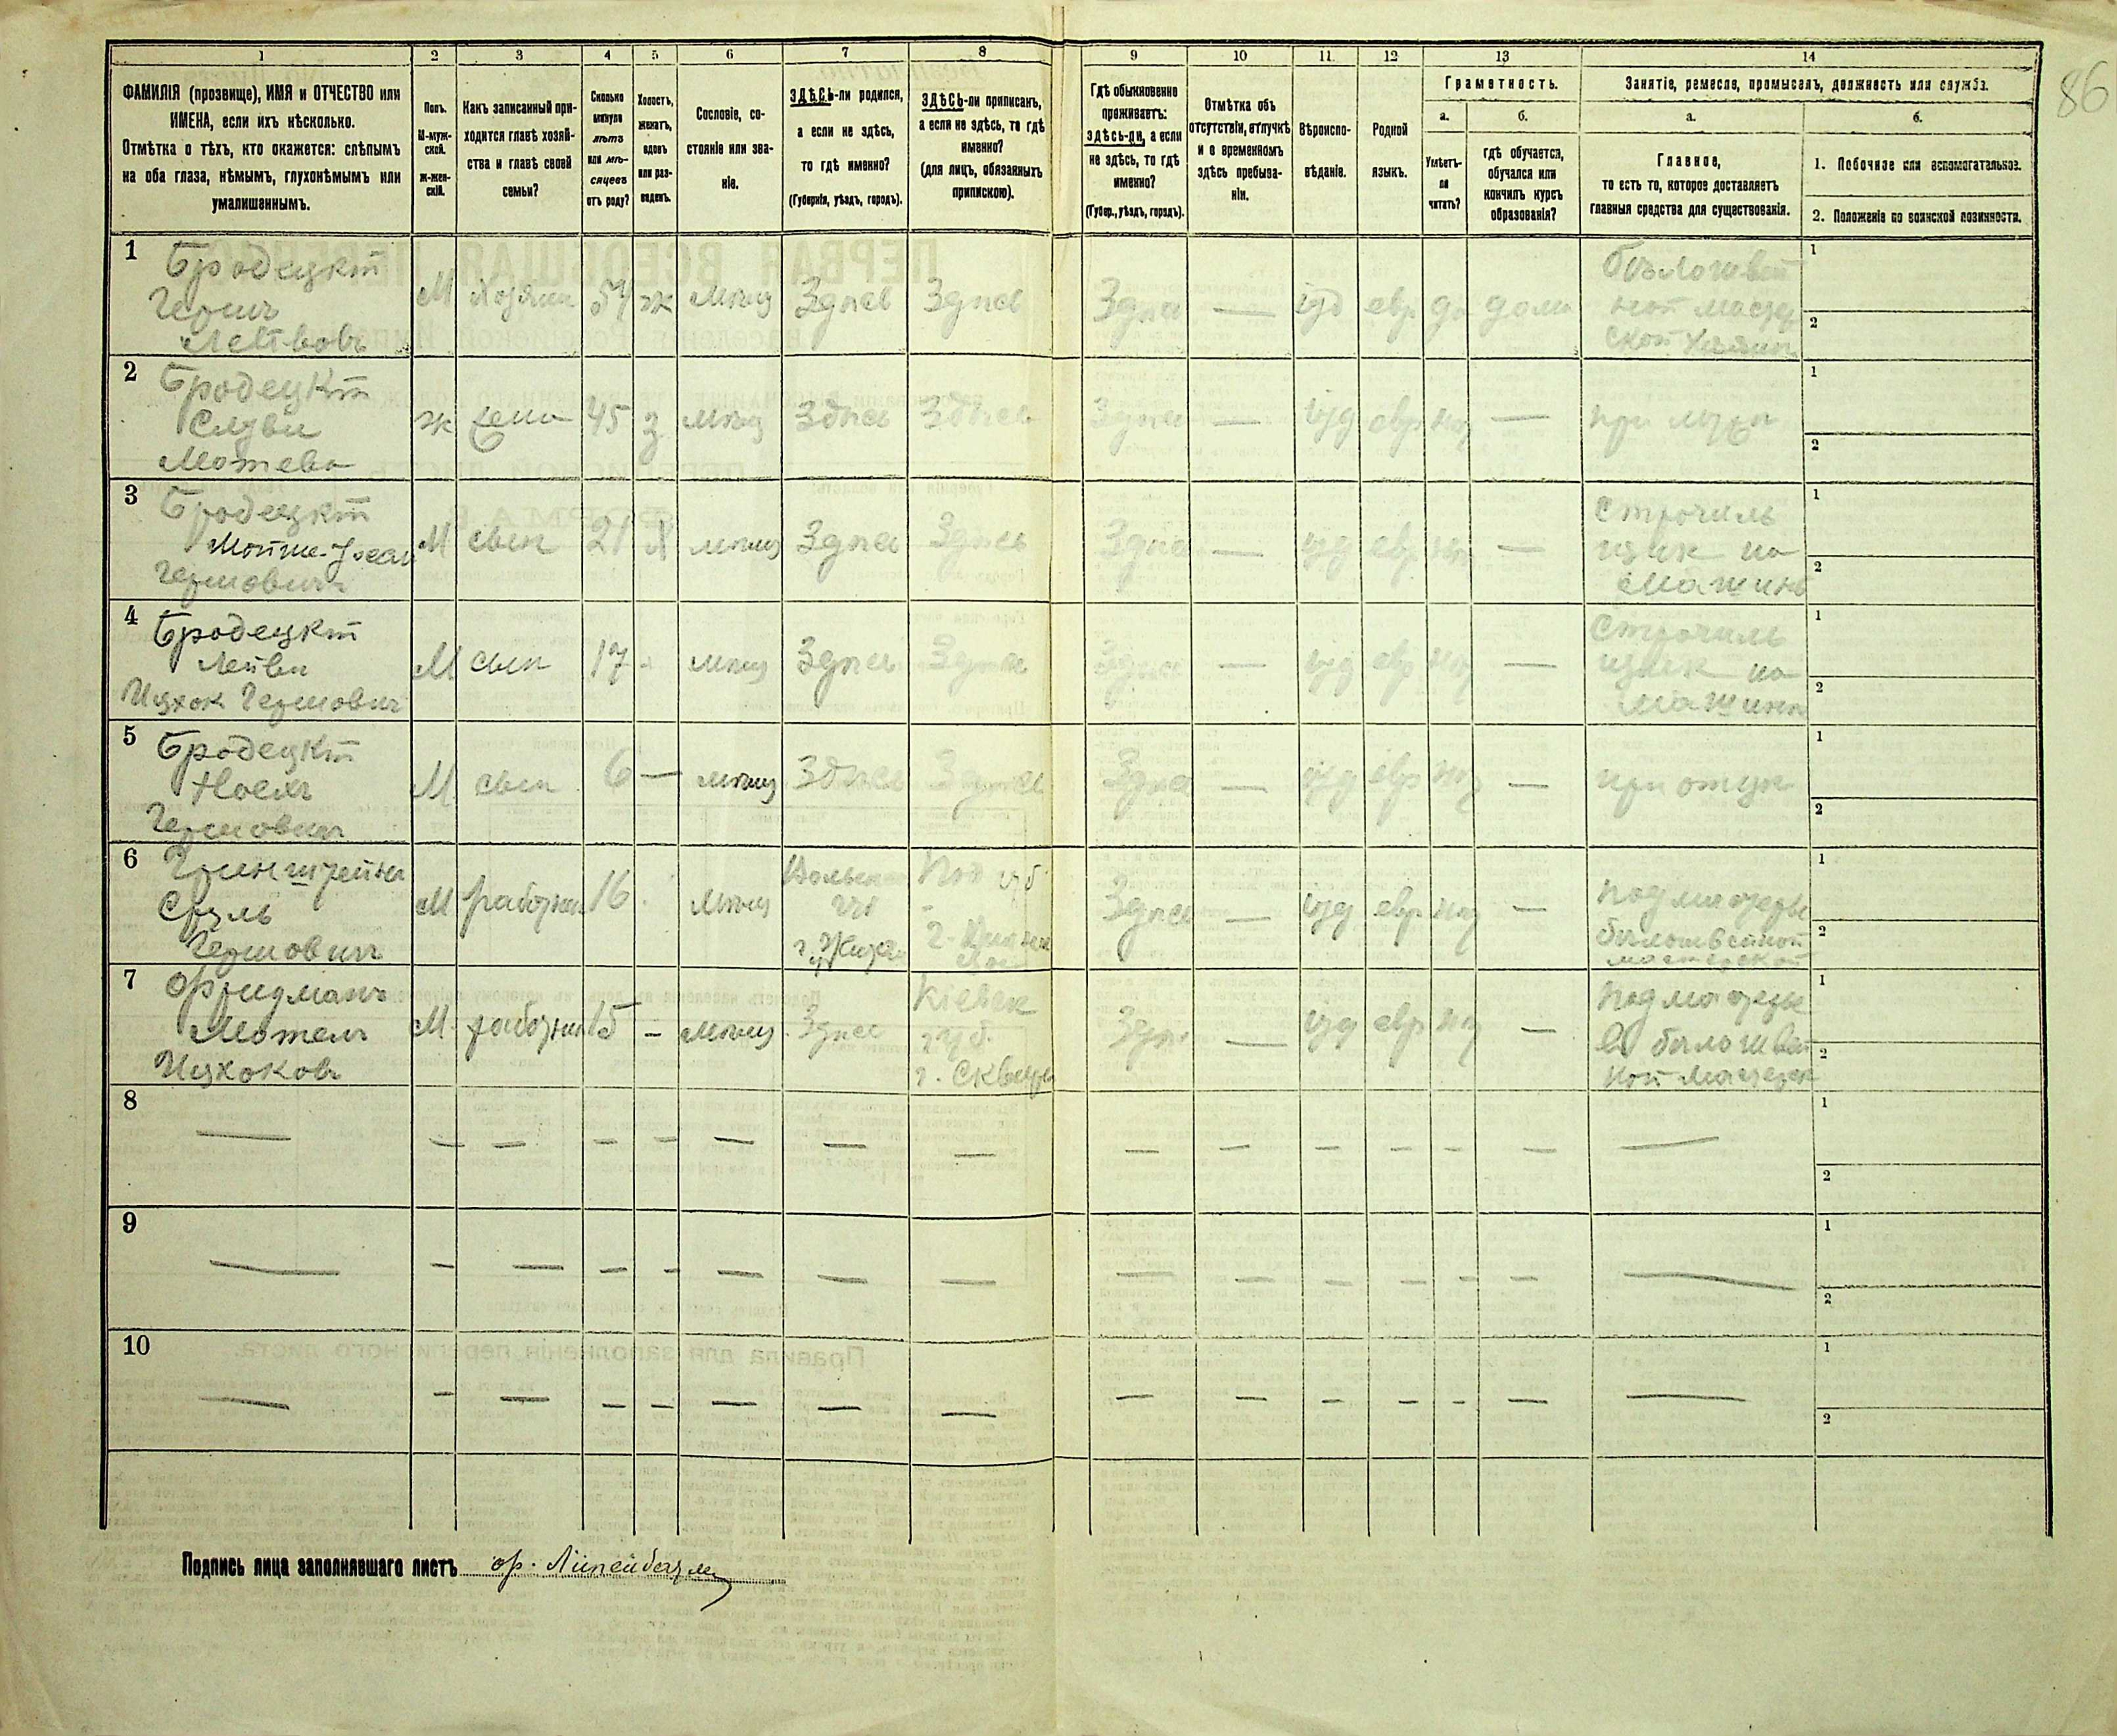 86
1 2 3 4 5 6 7 8 9 10 11. 12 13 14
ФАМИЛІЯ (прозвище), ИМЯ и ОТЧЕСТВО или
ИМЕНА, если ихъ нѣсколько.
Отмѣтка о тѣхъ, кто окажется: слѣпымъ
на оба глаза, нѣмымъ, глухонѣмымъ или
умалишеннымъ.
Полъ.
М-муж-
ской.
ж-жен-
скій.
Какъ записанный при-
ходится главѣ хозяй-
ства и главѣ своей
семьи?
Сколько
минуло
лѣтъ
или мѣ-
сяцевъ
отъ роду?
Холостъ,
женатъ,
вдовъ
или раз-
веденъ.
Сословіе, со-
стояніе или зва-
ніе.
ЗДѢСЬ-ли родился,
а если не здѣсь,
то гдѣ именно?
(Губернія, уѣздъ, городъ).
ЗДѢСЬ-ли приписанъ,
а если не здѣсь, то гдѣ
именно?
(для лицъ, обязанныхъ
припискою).
Гдѣ обыкновенно
проживаетъ:
здѣсь-ли, а если
не здѣсь, то гдѣ
именно?
(Губер., уѣздъ, городъ).
Отмѣтка объ
отсутствіи, отлучкѣ
и о временномъ
здѣсь пребыва-
ніи.
Вѣроиспо-
вѣданіе.
Родной
языкъ.
Грамотность.
а.
Умѣетъ-
ли
читать?
б.
гдѣ обучается,
обучался или
кончилъ курсъ
образованія?
Занятіе, ремесло, промыселъ, должность или служба.
а.
Главное,
то есть то, которое доставляетъ
главныя средства для существованія.
б.
1. Побочное или вспомогательное.
2. Положеніе по воинской повинности.
1
Бродецкій
Гершъ
Лейбовъ
М Хозяин 54 ж Мѣщ Здѣсь Здѣсь Здѣсь — іуд евр да дома
бѣлошвей
ной мастер
ской хозяин
1
2
2
Бродецкій
Мотева
ж жена 45 з мѣщ Здѣсь Здѣсь Здѣсь — іуд евр нѣт — при мужѣ
1
2
3
Бродецкій
Мойше-
Гершовичъ
М сын 21 Х мѣщ Здѣсь Здѣсь Здѣсь — іуд евр нѣт —
Строчиль
щик на
Машинѣ
1
2
4
Бродецкій
Лейви
Ицхок Гершович
М сын 17 - мѣщ Здѣсь Здѣсь Здѣсь — іуд евр нѣт —
Строчиль
щик на
Машинѣ
1
2
5
Бродецкій
Гершович
М сын 6 — мѣщ Здѣсь Здѣсь Здѣсь — іуд евр нѣт — при отцѣ
1
2
6
Гринштейнъ
Сруль
Гершович
М работник 16 мѣщ
Здѣсь — іуд евр нѣт —
подмастерье
бѣлошвейной
мастерской
1
2
7
Фридманъ
Мотель
Ицхоковъ
М работник 15 — мѣщ Здѣсь
Кіевск
губ.
г. Сквира
Здѣсь — іуд евр нѣт —
подмастерье
в бѣлошвей
ной мастерск
1
2
8
— — — — — — — — — — — — — — —
1
2
9
— — — — — — — — — — — — — — —
1
2
10
— — — — — — — — — — — — — — —
1
2
Подпись лица заполнявшаго листъ